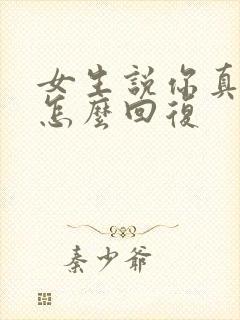 女生説你真
怎麼回復
秦少爺